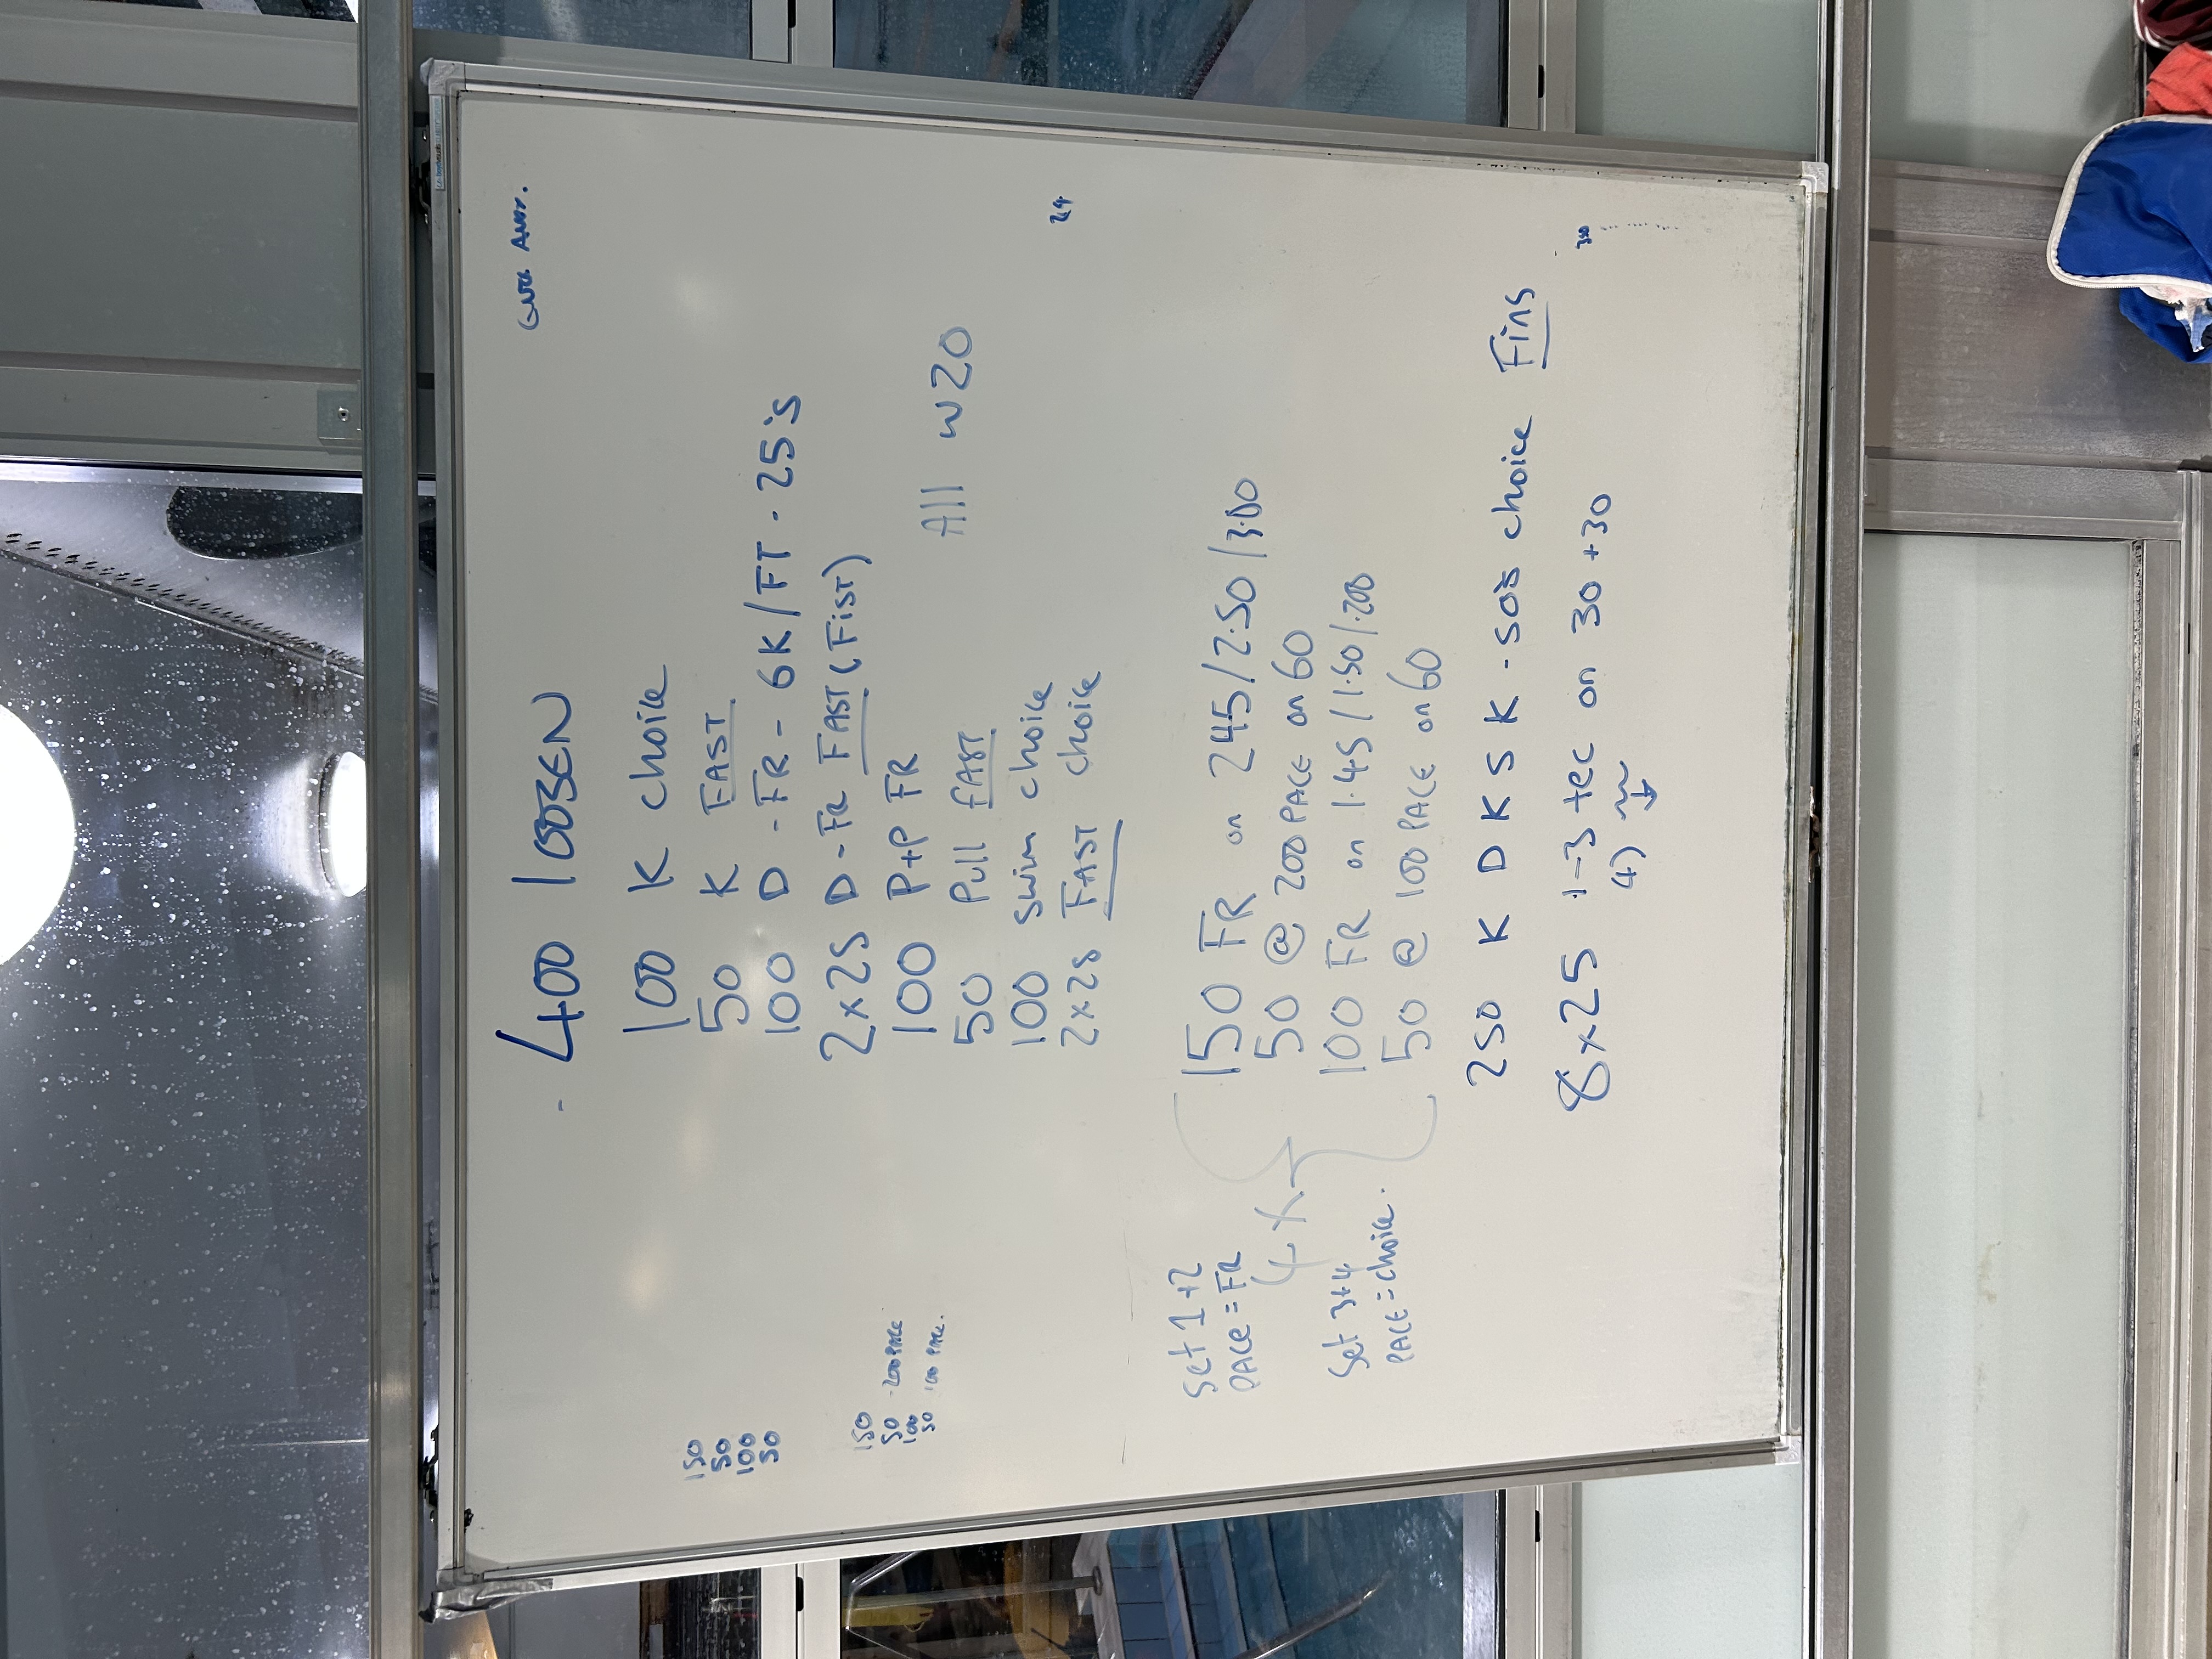 400 loosen
100 K choice
50 K FAST
100 D - FR - 6K/FT - 25's
2x25 D-FR FAST (Fist)
100 P+P FR
50 Pull fAST
All w20
100 swim choice
2x25 FAST choice
24
150
50
100
50
150
50 - 200 PACE
100
50 100 PACE.
Set 1+2
PACE = FR
4x
Set 3+4
PACE = choice.
150 FR on 245/2.50/3.00
50 @ 200 PACE on 60
100 FR on 1.45/1.50/.200
50 @ 100 PACE on 60
250 K D K S K - 50s choice Fins
8x25 1-3 tec on 30+30
4)
350